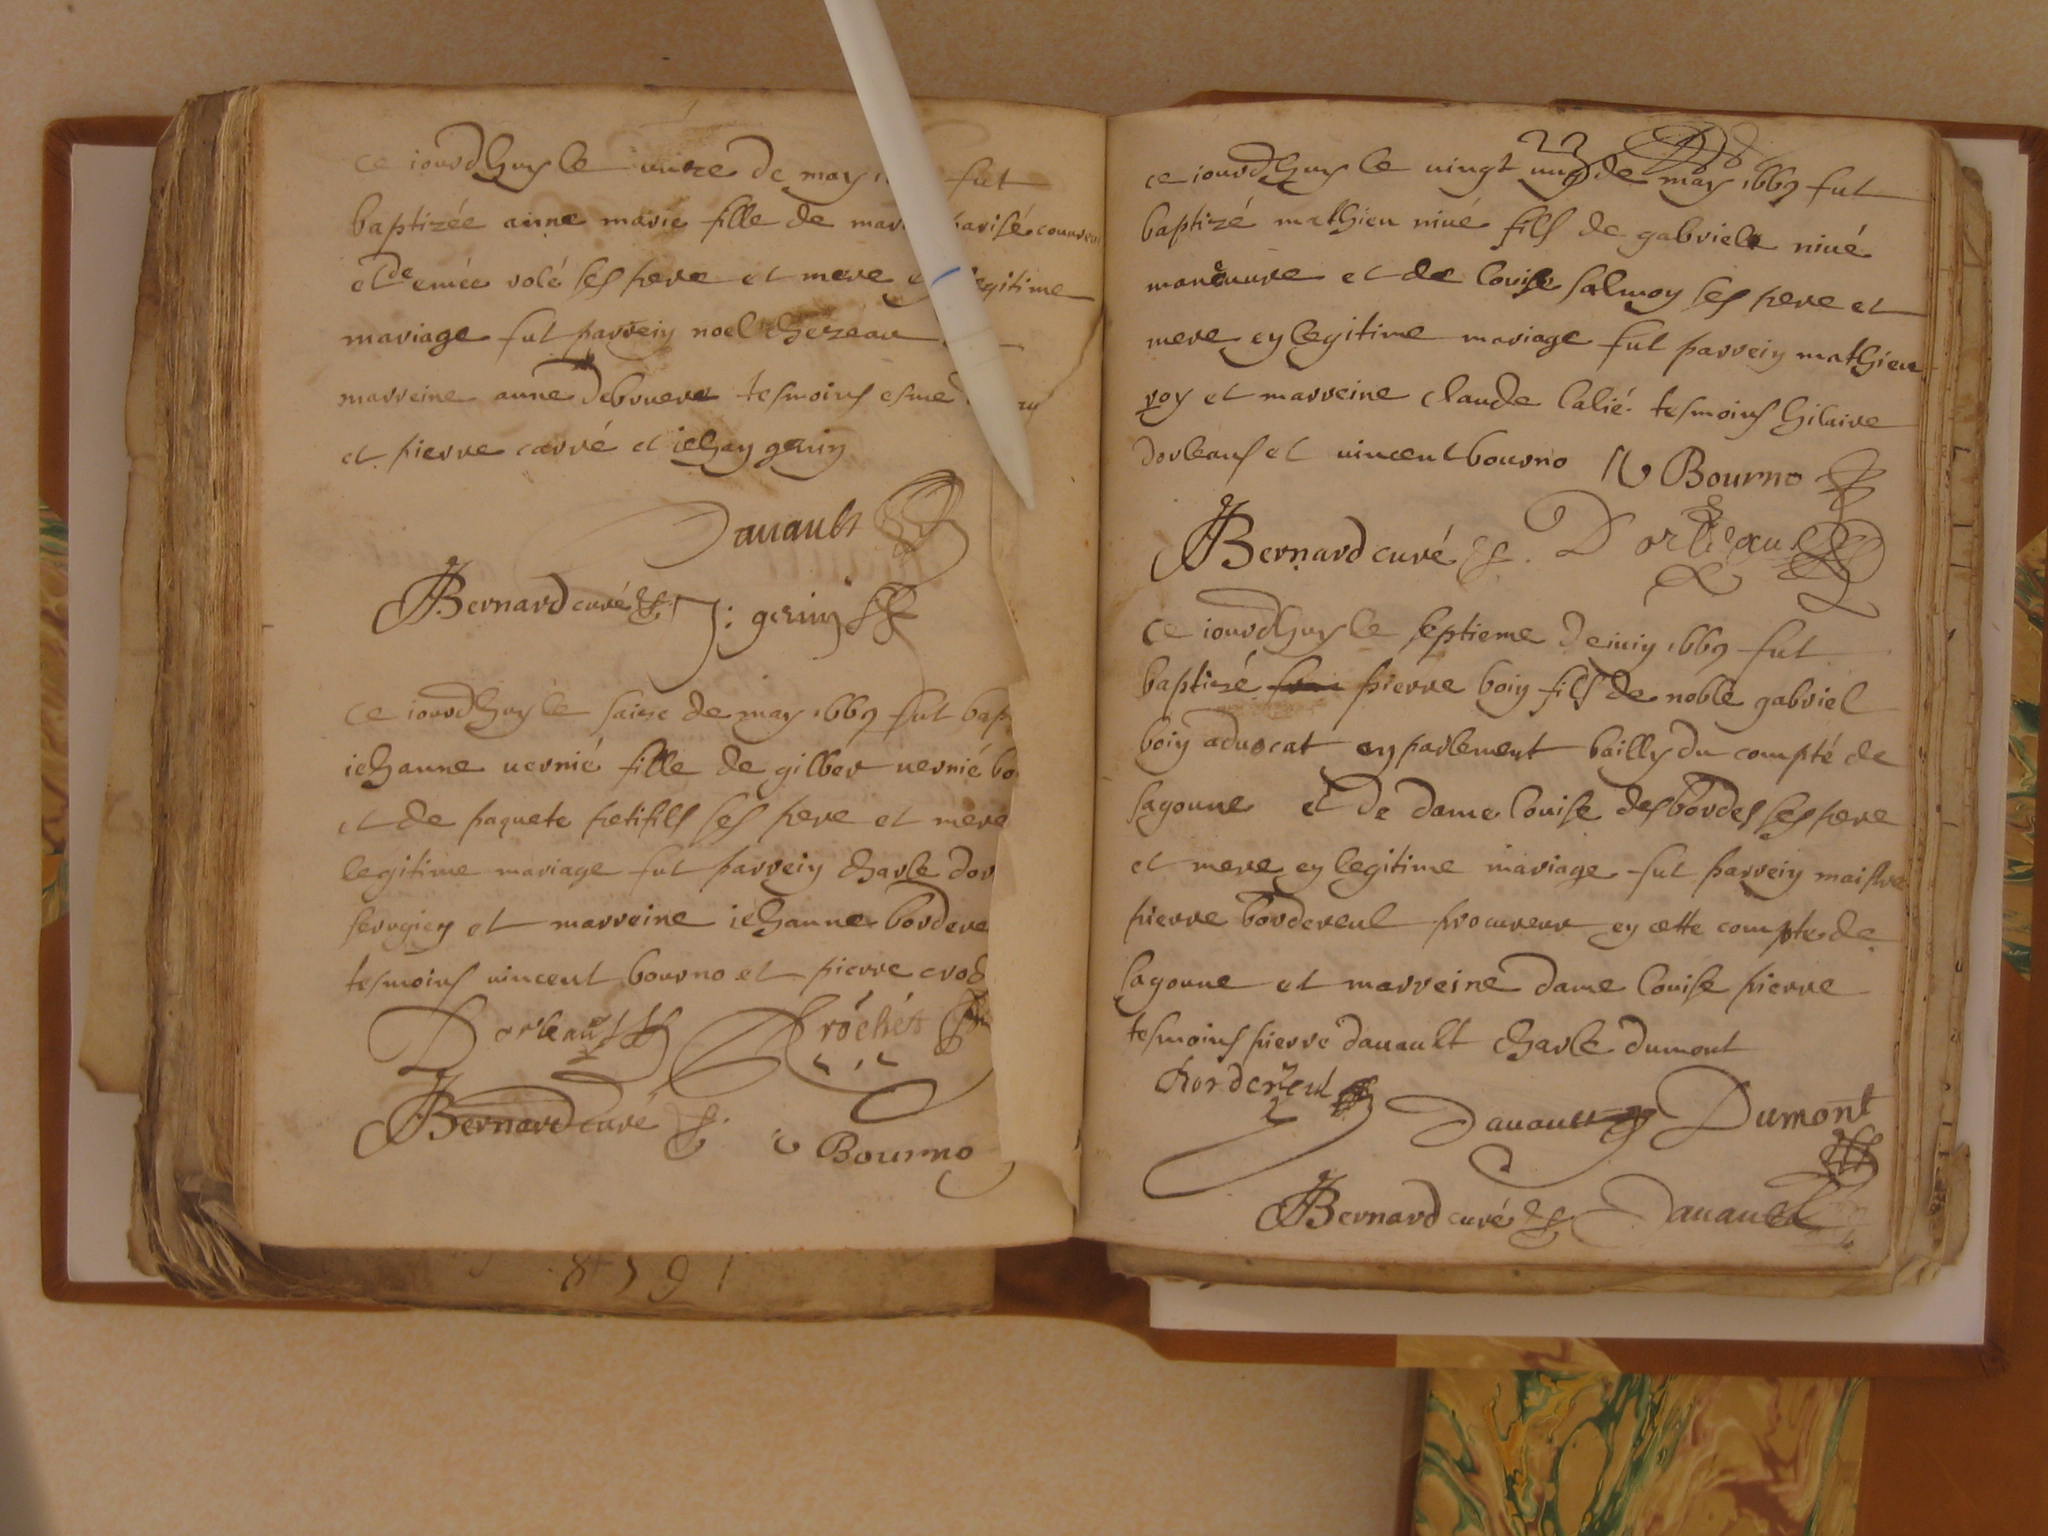 ce iourdhuy le unze de may fut
baptizée anne marie fille de
et de emée volé ses pere et mere legitime
mariage fut parrein noel cherzeau
marreine anne debruere tesmoins esme
et pierre carré et iehan gerin
Dauault
Bernard curé J: gerin
ce iourdhuy le saize de may 1669 fut bap
iehanne vernié fille de gilber vernié bo
et de paquete petifils ses pere et mere
legitime mariage fut parrein charle dor
serrgien et marreine iehanne bordere
tesmoins uincent bourno et pierre croch
Dorleans Crochet
Bernard curé
v Bourno
8791
23
ce iourdhuy le uingt ung de may 1669 fut
baptizé mathieu niué fils de gabriel niué
maneuure et de louise salmon ses pere et
mere en legitime mariage fut parrein mathieu
roy et marreine claude lalié tesmoins hilaire
dorleans et uincent bourno V Bourno
Bernard curé D'orleans
ce iourdhuy le septieme de iuin 1669 fut
baptizé pierre boin fils de noble gabriel
boin aduocat en parlement bailly du compté de
sagonne et de dame louise desbordes ses pere
et mere en legitime mariage fut parrein maistre
pierre bordereul procureur en cette compte de
sagonne et marreine dame louise pierre
tesmoins pierre dauault charle dumont
bordereul
Dauault Dumont
Bernard curé Dauault